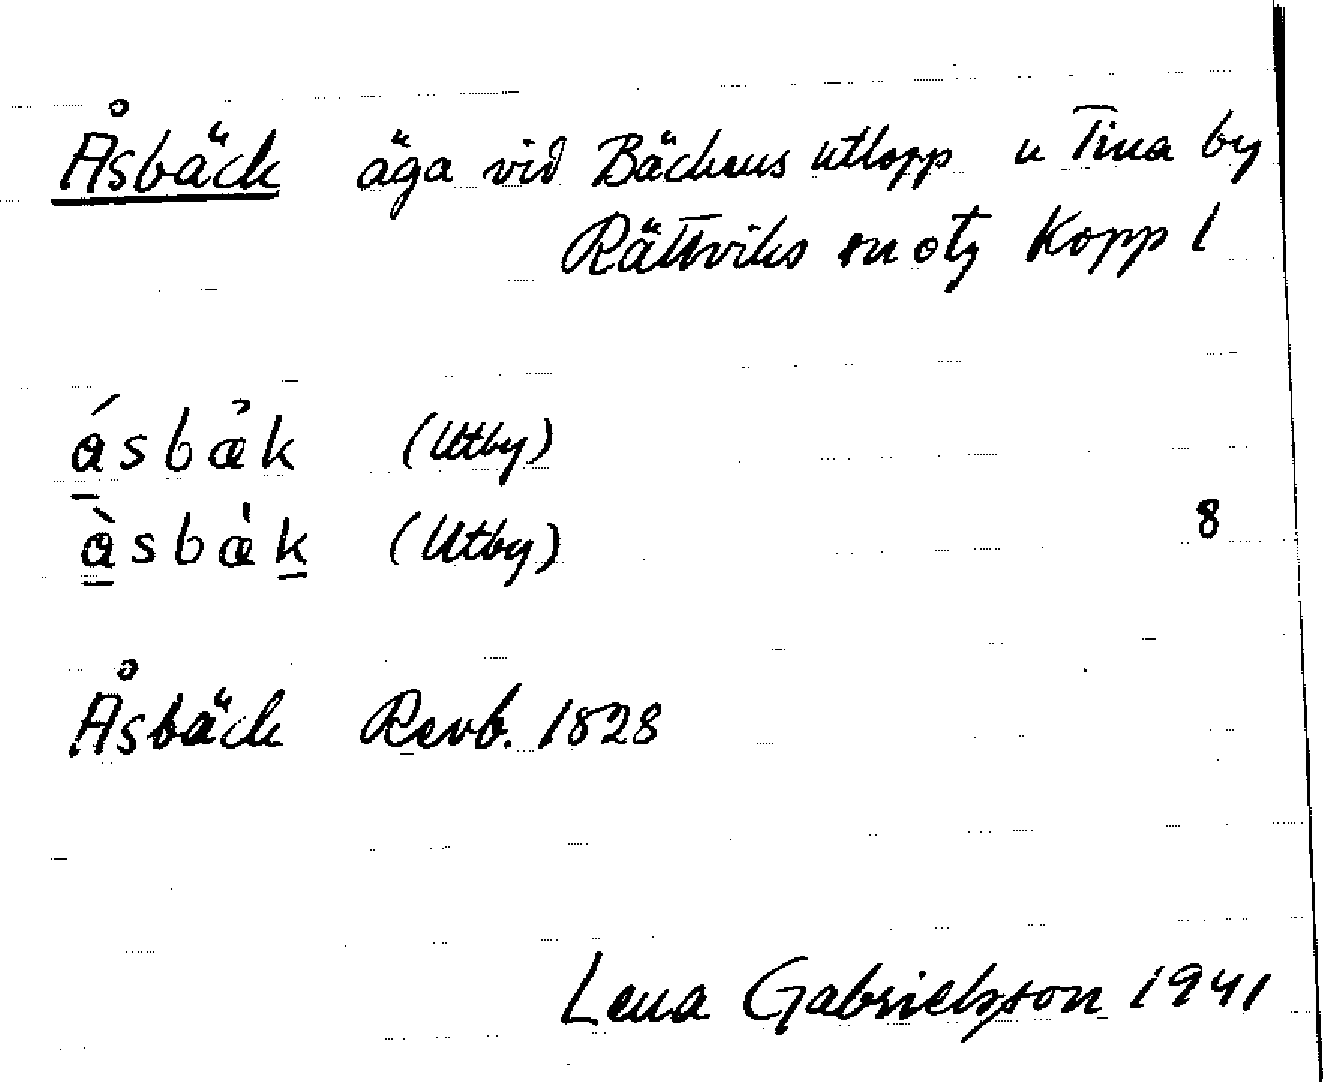 Åsbäck äga vid Bäckens utlopp u Tina by
Rättviks sn o tg Kopp l
ásbæ̉k (Utby)
àsbæ̇k (Utby)
8
Åsbäck Revb. 1828
Lena Gabrielsson 1941